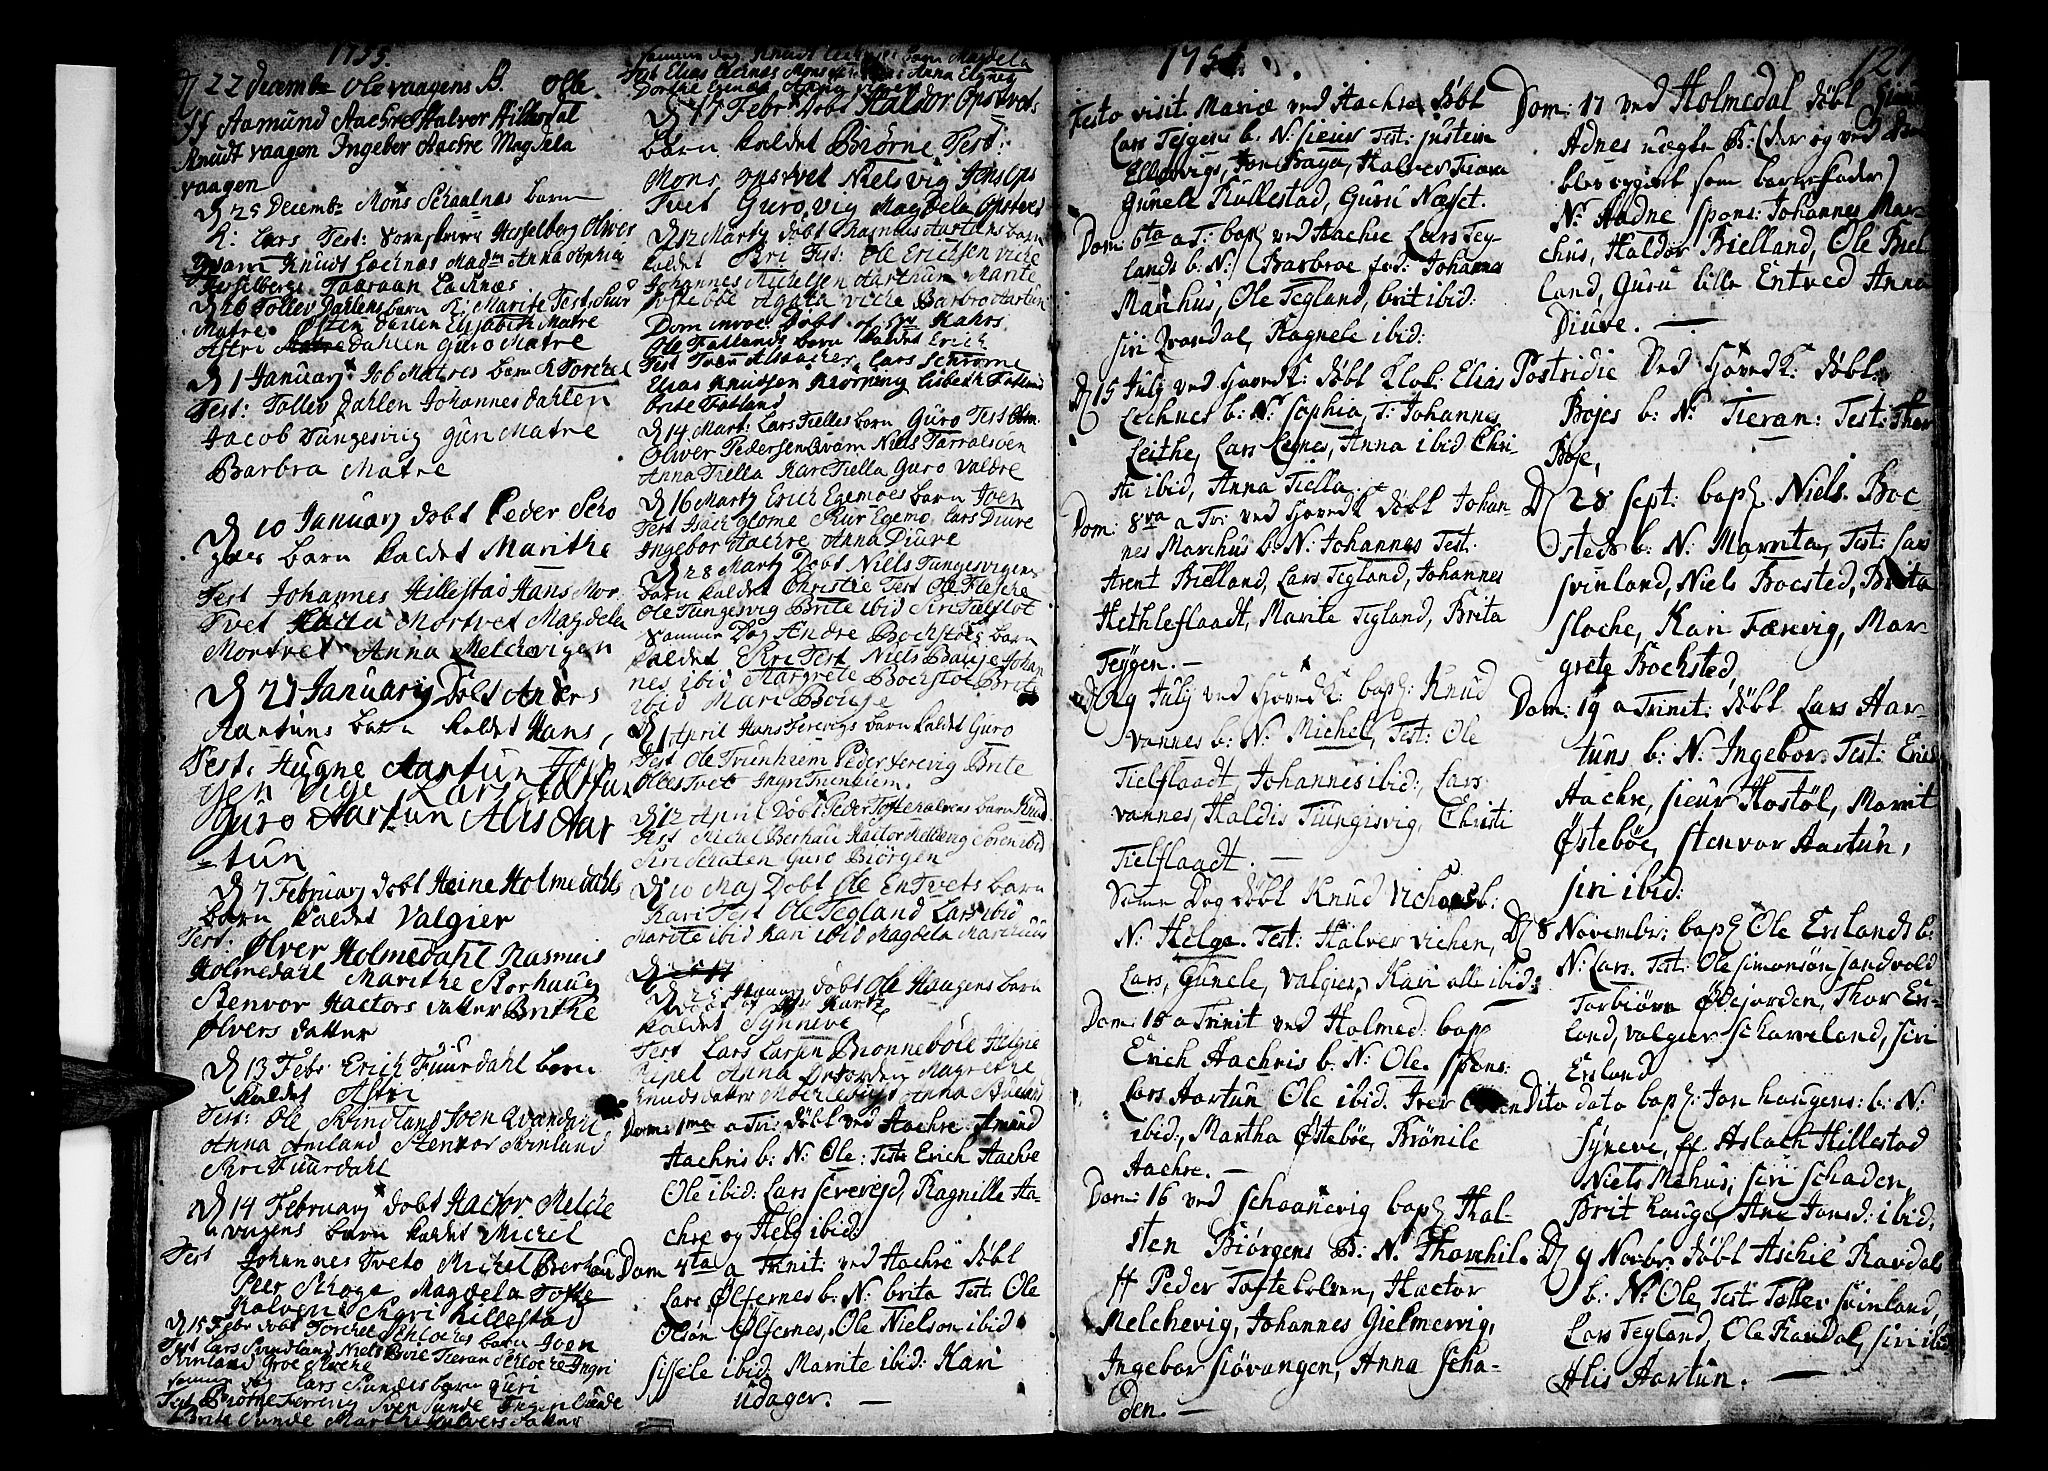 1755.
D 22 decemb: Ole vaagens B. Ole.
ff Aamund Aachre Halvor Hillestal
Knudt vaagen Ingeber Aachre Magdela
vaagen
D 25 Decembr Mons Schaalnæs barn
K: Lars Test: Hesselberg Oliver
Qvam Knudt Lachnæs Madm Anna Sophia
Hesselberg Taaraan Lachnæs
D 26 Tollev Dahlens barn K: Marite Test, Siur
Matre Østen Dahlen Elisabeth Matre
Astri Dahlen Guro Matre
D 1 January Job Matres barn K Torchel
Test: Tollev Dahlen Johannes Dahlen
Jacob Tungesvig Guri Matre
Barbra Matre
D 10 January dobt Peder Scho
ges barn kaldet Marithe
Test Johannes Hillestad Hans Mor
tvet Mortvet Magdela
Mortvet Anna Melchevigen
D 27 January Dobt Anders
Aartuns barn kaldet Hans,
Test: Hugne Aartun
gen Vige, Lars Aartun
Guro Aartun Alis Aar
-tun
D 7 February dobt Heine Holmedahls
barn kaldet Valgier
Test:
Ølver Holmedahl Rasmus
Holmedahl Marithe Storhaug
Stenvor Hactors datter Brithe
Ølvers datter
D 13 Febr Erich Fuurdahl barn
kaldet Astri
Test: Ole Svindland Iven Qvandahl
Anna Aniland Stenvor Svinland
Siri Fuurdahl
D 14 February dobt Hactor Melche
vigens barn kaldet Michel
Test Johannes Tveto Michel Berhau
Peer Schoge Magdela Tofte
Kalven Sigri Hillestad
D 15 Febr dobt Torchel Schloches barn Joen
Test Lars Svindland Niels Boie Tieran Schloche Ingri
Svinland Groe Sloche
Samme dag Lars Sundes barn Guri
Test Biørne Ferrevig Sven Sunde Ingri Sunde
Brite Sunde Marthe Halvers datter
Samme dag Knudt barn Magdela
Test Elias Lechnæs Mons Anna
Dorthe
D 17 Febr Dobt Haldor Opsvets
barn kaldet Biørne Test:
Mons opsvet Niels vig Jens Ops
tvet Guro vig Magdela Opstvet
D 12 Marty dobt Rasmus Aartuns barn
kaldet Siri Test: Ole Erichsen viche
Johannes Michelsen Aarthun Marite
Toftebøe Agata viche Barbro Aartun
Dom invoc: Døbt af Hr Kahrs
Ole Fatlands barn kaldet Erich
Test Sven Alsaacher, Lars
Elias Knudsen Kiørning Lisbeth Fatland
Brite Fatland
D 14 Mart: Lars Tielles barn Guro Test
Oliver Pedersen Qvam Niels Tarralsven
Anna Tiella Kari Tiella Guro Valdre
D 16 Marty Erich Egemoes barn Joen
Test Hach Glome Siur Egemo Lars Diure
Ingebor Aachre Anna Diure
D 28 Marty Dobt Niels Tungesvigens
barn kaldet Christie Test Ole Flesche
Ole Tungesvig Brite ibid Siri Tielflot
Samme Dag Andre Bochstoes barn
kaldet Siri Test Niels Bauje Johan
nes ibid Margrete Bochstoe Brite
ibid Mari Bouje
D 1 April Hans Ferevigs barn kaldet Guro
Test Ole Trienheim Peder Ferevig Brite
Ølvestvet Ingri Trienheim
D 12 April Dobt Peder Toftekalvens barn Knud
Test Michel Berhau Hactor Melkevig Soren ibid
Siri Schaten Guro Biørgen
D 10 Maj Dobt Ole Entvets barn
Kari Test Ole Tegland Lars ibid
Marite ibid Kari ibid Magdela Marchuus
D 25 dobt Ole Haugens barn
kaldet Synneve
Test Lars Larsen Brønnebøle Helgie
Anna Magrethe
Knuds datter Anna
Dom: 1ma a Tri: døbt ved Aachre Amund
Aachris b: N: Ole: Test: Erich Aachre
Ole ibid: Lars Severejd, Ragnille Aa-
chre og Helg ibid:
Dom 4ta a Trinit: ved Aachre døbt
Lars Ølfernes b: N: brita Test: Ole
Olsøn Ølfernes, Ole Nielsøn ibid:
Sissele ibid: Marrite ibid: Kari
Udager. —
175
127
Festo visit. Mariæ ved Aachre døbt
Lars Teigens b: N: Sieur Test: Justein
Ellervigs, Jon Baga, Halver
Gunele Kullestad, Guru Næsset.
Dom: 6ta a T: bapt ved Aachre Lars Teg-
lands b: N: Barbroe fad: Johannes
Marchus, Ole Tegland, brit ibid:
Siri Qvandal, Ragnele ibid:
D 15 July ved Hovedk: døbt Klok: Elias
Lechnes b: N: Sophia, T: Johannes
Leithe, Lars Legnes, Anna ibid Chri-
sti ibid, Anna Tiella.
Dom: 8va a Tr: ved Hovedk døbt Johan-
nes Marchus b: N: Johannes Test:
Arent Bielland, Lars Tegland, Johannes
Hethleflaadt, Marite Tegland, Brita
Teygen. —
D 29 July ved Hovedk: bapt: Knud
Vannes b: N: Michel, Test: Ole
Tielflaadt, Johannes ibid:, Lars
Vannes, Haldis Tiungisvig, Christi
Tielflaadt. —
Same Dag døbt Knud Vichens b:
N: Helga. Test: Halver Vichen,
Lars, Gunele, Valgier, Kari alle ibid:
Dom: 15 a Trinit ved Holmed: bapt
Erich Aachris b: N: Ole. Spons:
Lars Aartun Ole ibid. Iver
ibid:, Martha Østebøe, Krønile
Aachre. —
Dom: 16 ved Schaanevig bapt Hal-
sten Biørgens B: N: Thorchil.
ff Peder Toftekalven, Hactor
Melchevig, Johannes Gielmervig,
Ingebor Siøvangen, Anna Scha-
den. —
Dom: 17 ved Holmedal døbt
Adnes uægte B: (der og ved
blev opgivet som barnefader)
N: Aadne Spons: Johannes Mar-
chus, Haldor Bielland, Ole Biel
land, Guru lille Entved Anna
Diuve. —
Postridie Ved Hovedk: døbt
Bøjes b: N: Tieran: Test: Thor
Bøje,
D 28 Sept: bapt Niels Boc
steds b: N: Marrita, Test: Lars
Svinland, Niels Bocsted, Brita
Sloche, Kari Færevig, Mar-
grete Bochsted,
Dom: 19 a Trinit: døbt Lars Aar-
tuns b: N: Ingebor Test: Erich
Aachre, Sieur Hostøl, Marrit
Østebøe, Stenvor Aartun,
Siri ibid:
D 8 November bapt Ole Erslands b:
N: Lars. Test: Ole Simonsøn Sandvold
Torbiørn Ødejorden, Thor Ers-
land, Valgier Scharveland, Siri
Ersland
Dito dato bapt: Jon Haugens: b: N:
Syneve, ff. Aslach Hillestad
Niels Mehus, Siri Schaden,
Brit Hauge, Ane Jonsd: ibid:
D 9 Novbr. døbt Aschie Ravdal
b: N: Ole, Test: Tollev Svinland,
Lars Tegland, Ole Ravdal, Siri ibid
Alis Aartun. —